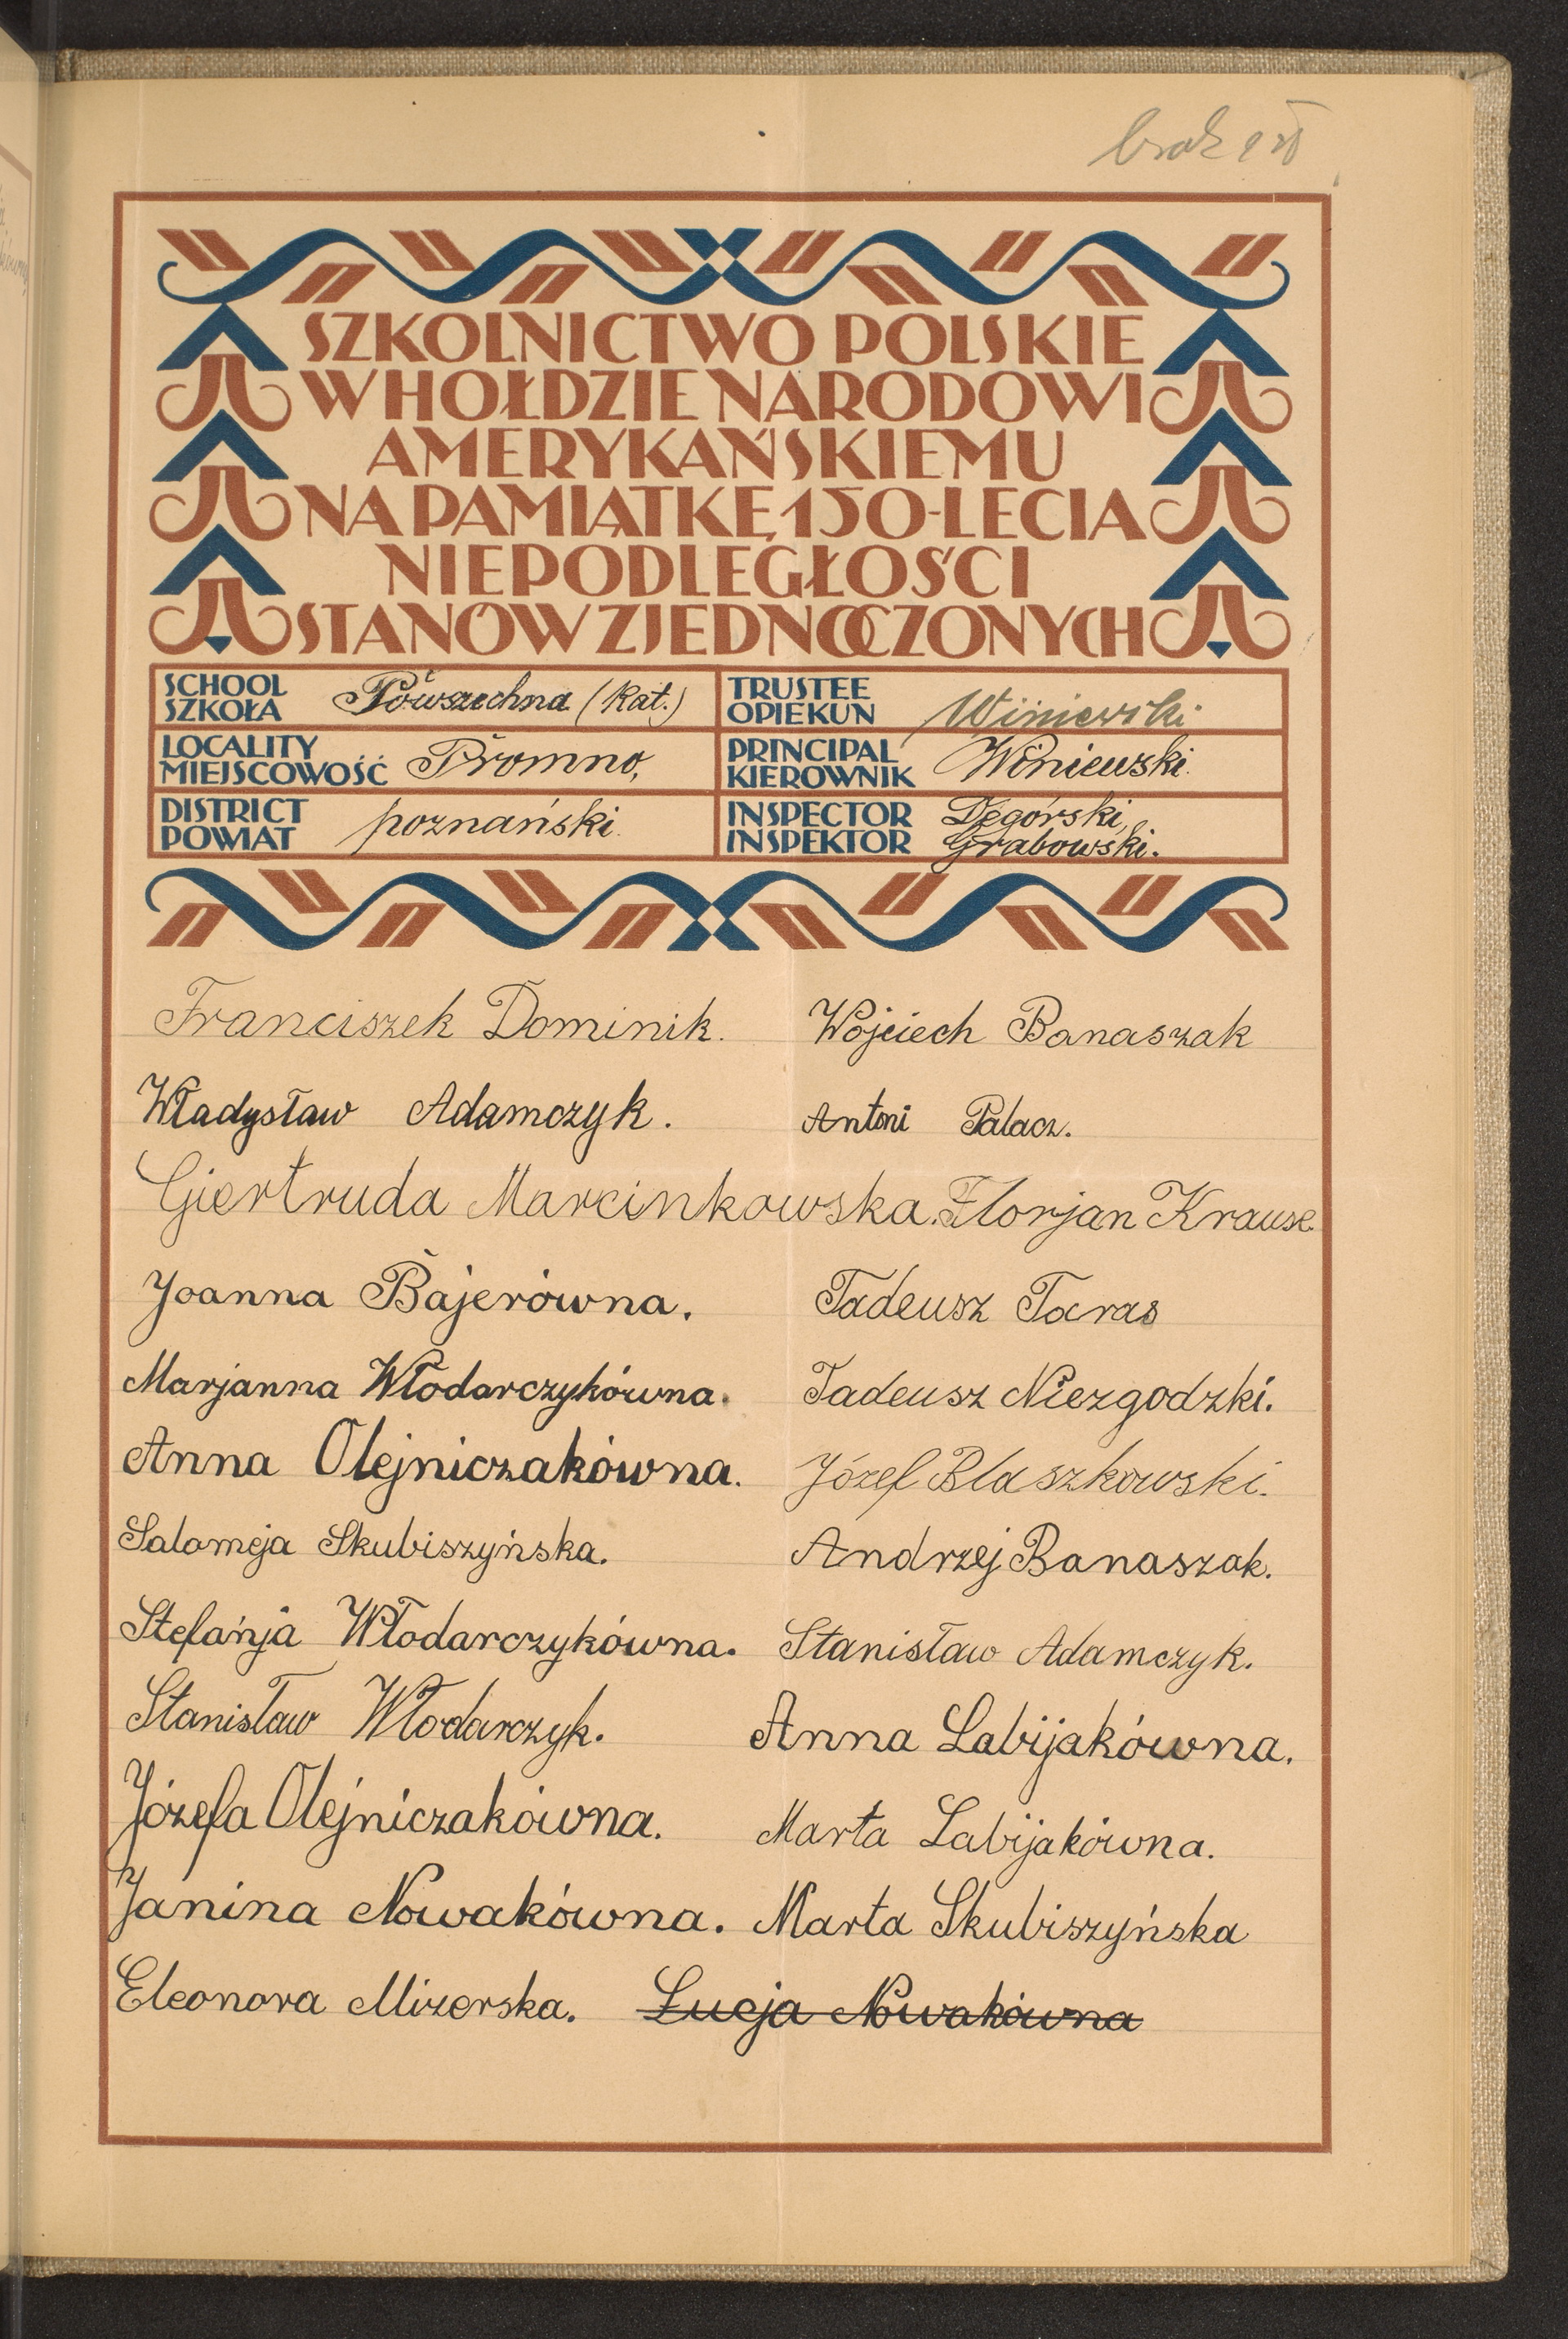 brak
SZKOLNICTWO POLSKIE
W HOŁDZIE NARODOWI
AMERYKAŃSKIEMU
NA PAMIĄTKĘ 150-LECIA
NIEPODLEGŁOŚCI
STANÓW ZJEDNOCZONYCH
SCHOOL
SZKOŁA Powszechna (kat.)
TRUSTEE
OPIEKUN Winiewski
LOCALITY
MIEJSCOWOŚĆ Promno,
PRINCIPAL
KIEROWNIK Winiewski.
DISTRICT
POWIAT poznański.
INSPECTOR Degórski,
INSPEKTOR Grabowski.
Franciszek Dominik. Wojciech Banaszak
Władysław Adamczyk. Antoni Palacz.
Giertruda Marcinkowska. Florjan Krause
Joanna Bajerówna. Tadeusz Taras
Marjanna Włodarczykówna. Tadeusz Niezgodzki.
Anna Olejniczakówna. Józef Blaszkowski.
Salomeja Skubiszyńska. Andrzej Banaszak.
Stefańja Włodarczykówna. Stanisław Adamczyk.
Stanisław Włodarczyk. Anna Labijakówna.
Józefa Olejniczakówna. Marta Labijakówna.
Janina Nowakówna. Marta Skubiszyńska
Eleonora Mizerska. Łucja Nowakówna